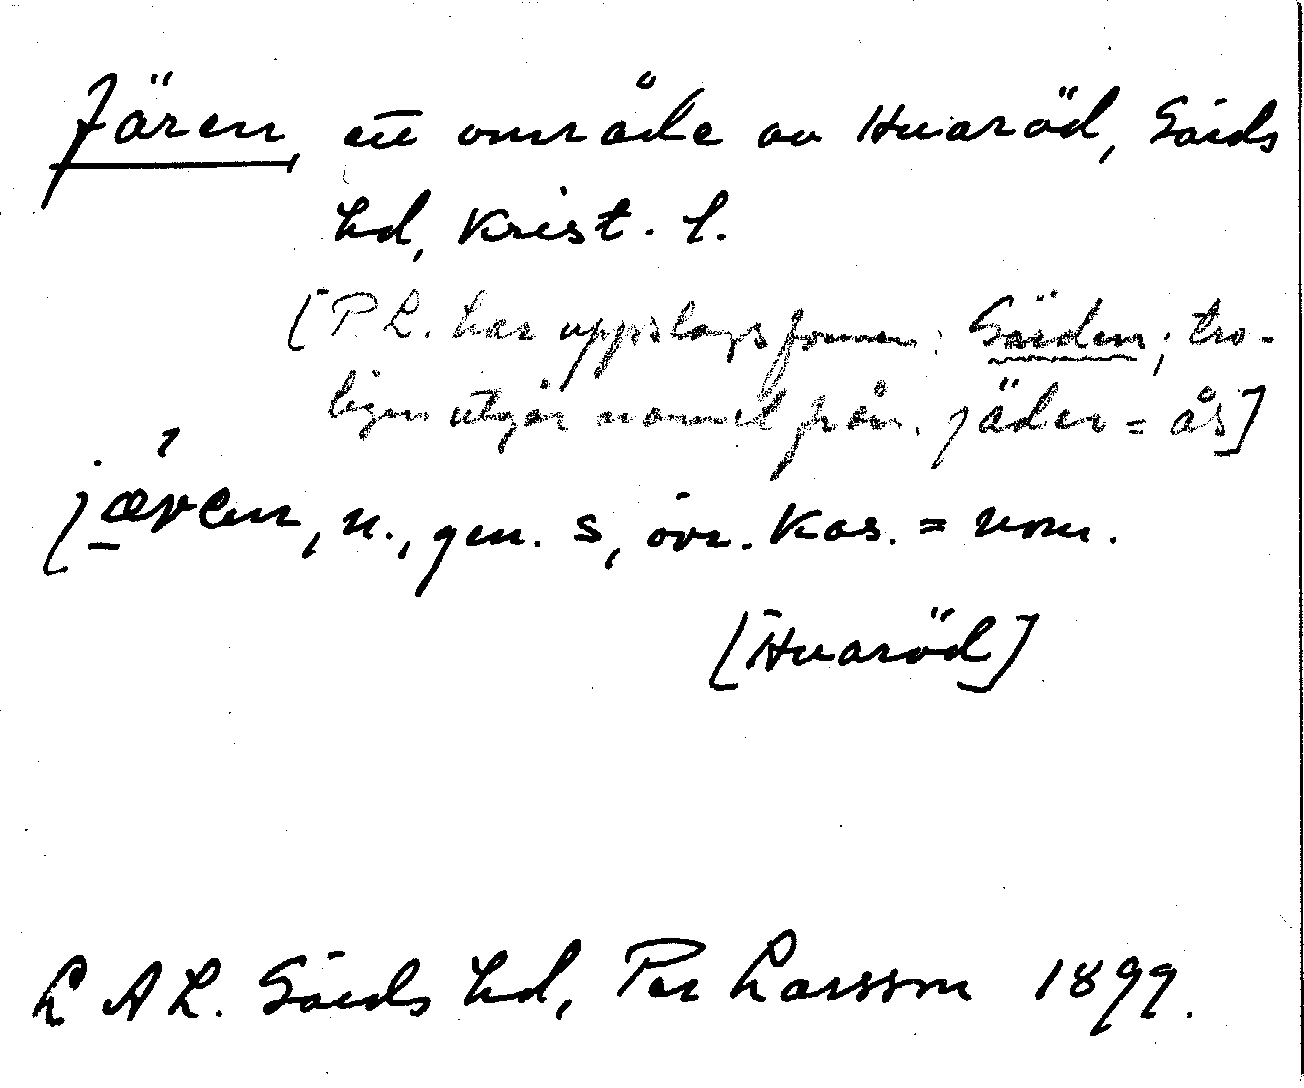 Jären, ett område av Huaröd, Gärds
hd, Krist. l.
[P. L. har uppslagsformen: Gärden; tro-
ligen utgår namnet från. jäder = ås]
jæren, n., gen. s, övr. kas. = nom.
[Huaröd]
L A L. Gärds hd, Per Larsson 1899.